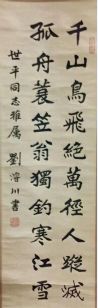 千山鳥飛絕萬徑人蹤滅
孤舟蓑笠翁獨釣寒江雪
世平同志雅屬 劉濬川書